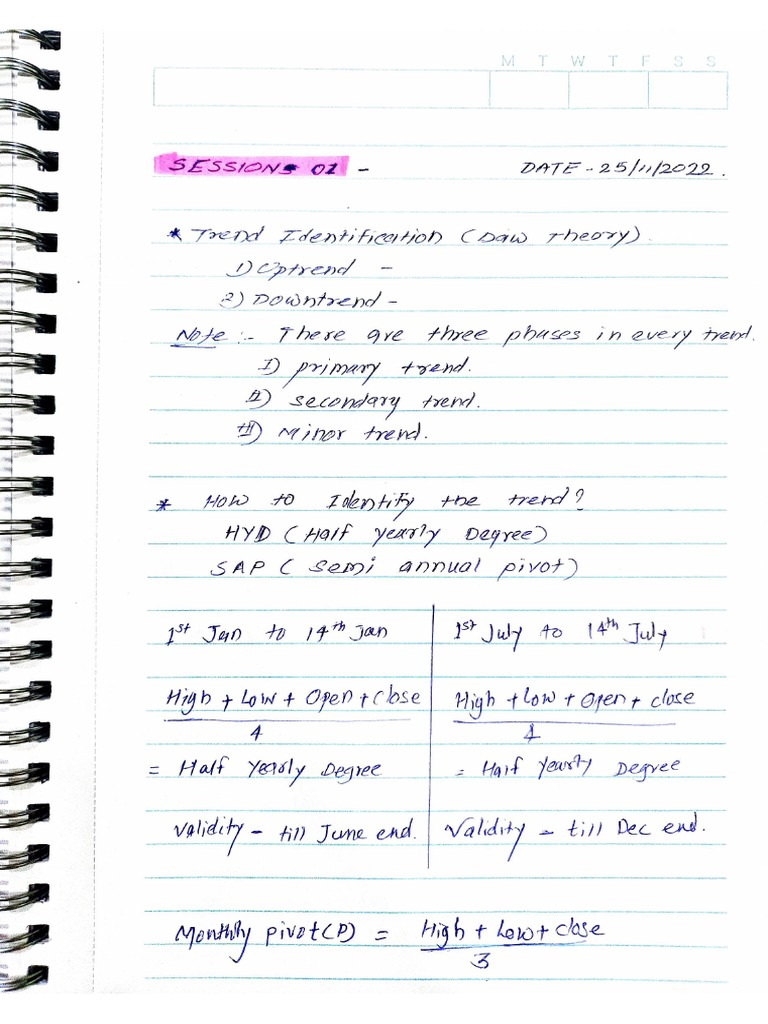 M T W T F S S
SESSION 01 - DATE - 25/11/2022.
* Trend Identification (Daw Theory).
1) Uptrend -
2) Downtrend -
Note :- There are three phases in every trend.
I) primary trend.
II) secondary trend.
III) Minor trend.
* How to Identify the trend?
HYD (Half Yearly Degree)
SAP (Semi annual pivot)
1st Jan to 14th Jan
High + Low + Open + Close
4
= Half Yearly Degree
Validity - till June end.
1st July to 14th July
High + Low + Open + close
4
= Half Yearly Degree
Validity - till Dec end.
Monthly pivot(P) = High + Low + close
3